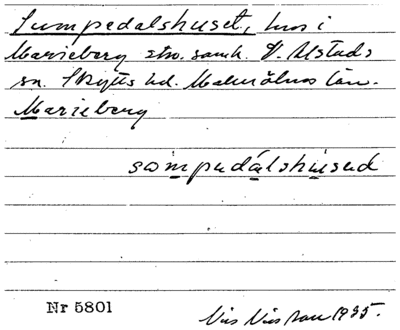 Sumpedalshuset, hus i
Marieberg stn.samh. V. Alstads
sn. Skytts hd. Malmöhus län.
Marieberg
sompedálshúsed
Nr 5801
Nils Nilsson 1935.